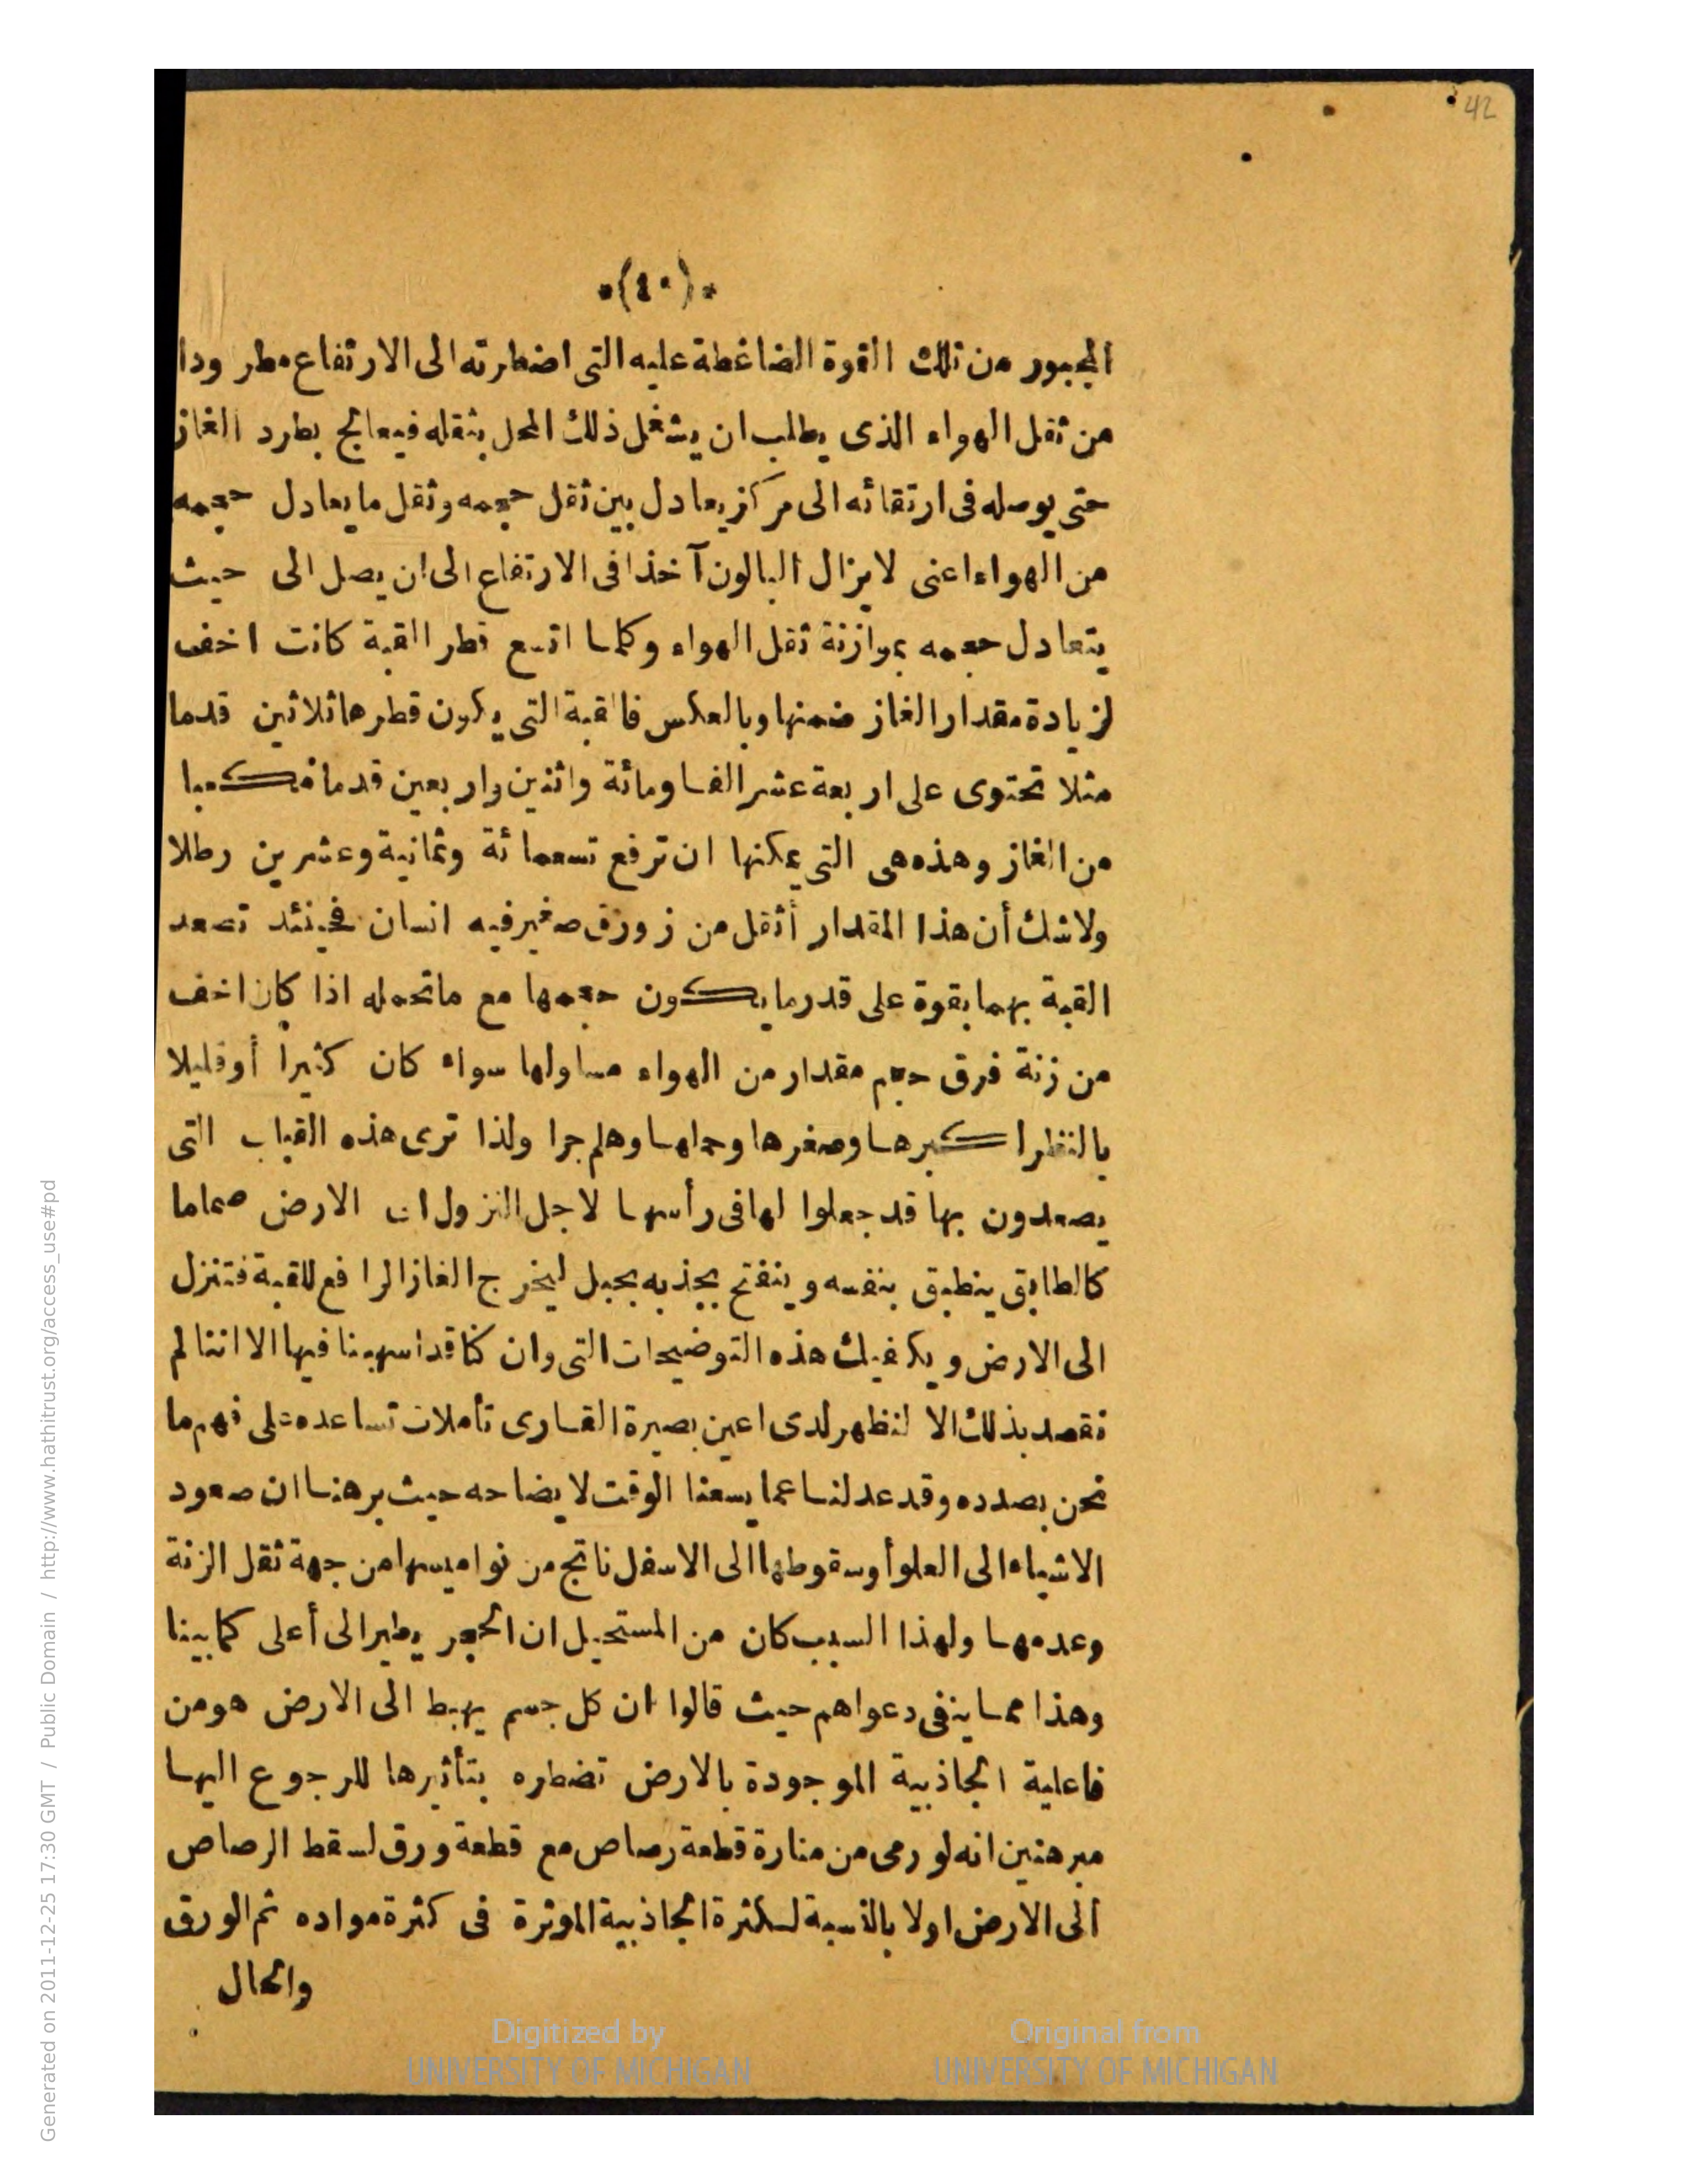 42
*(٤٠)*
المجبور من تلك القوة الضاغطة عليه التى اضطرته الى الارتفاع مطرودا
من ثقل الهواء الذى يطلب ان يشغل ذلك المحل بثقله فيعالج بطرد الغاز
حتى يوصله فى ارتقائه الى مركز يعادل بين ثقل حجمه وثقل ما يعادل حجمه
من الهواء اعنى لا يزال البالون آخذا فى الارتفاع الى ان يصل الى حيث
يتعادل حجمه بموازنة ثقل الهواء وكلما اتسع قطر القبة كانت اخف
لزيادة مقدار الغاز ضمنها وبالعكس فالقبة التى يكون قطرها ثلاثين قدما
مثلا تحتوى على اربعة عشر الفا ومائة واثنين واربعين قدما مكعبا
من الغاز وهذه هى التى يمكنها ان ترفع تسعمائة وثمانية وعشرين رطلا
ولا شك أن هذا المقدار أثقل من زورق صغير فيه انسان فحينئذ تصعد
القبة بهما بقوة على قدر ما يكون حجمها مع ما تحمله اذا كان اخف
من زنة فرق حجم مقدار من الهواء مساو لها سواء كان كثيرا أو قليلا
بالنظر لكبرها وصغرها وحملها وهلم جرا ولذا ترى هذه القباب التى
يصعدون بها قد جعلوا لها فى رأسها لاجل النزول الى الارض صماما
كالطابق ينطبق بنفسه وينفتح بجذبه بحبل ليخرج الغاز الرافع للقبة فتنزل
الى الارض ويكفيك هذه التوضيحات التى وان كنا قد اسهبنا فيها الا اننا لم
نقصد بذلك الا لنظهر لدى اعين بصيرة القارى تأملات تساعده على فهم ما
نحن بصدده وقد عدلنا عما يسعنا الوقت لايضاحه حيث برهنا ان صعود
الاشياء الى العلو أو سقوطها الى الاسفل ناتج من نواميسها من جهة ثقل الزنة
وعدمها ولهذا السبب كان من المستحيل ان الحجر يطير الى أعلى كما بينا
وهذا مما ينفى دعواهم حيث قالوا ان كل جسم يهبط الى الارض هو من
فاعلية الجاذبية الموجودة بالارض تضطره بتأثيرها للرجوع اليها
مبرهنين انه لو رمى من منارة قطعة رصاص مع قطعة ورق لسقط الرصاص
الى الارض اولا بالنسبة لكثرة الجاذبية الموثرة فى كثرة مواده ثم الورق
والحال
Digitized by
UNIVERSITY OF MICHIGAN
Original from
UNIVERSITY OF MICHIGAN
Generated on 2011-12-25 17:30 GMT / Public Domain / http://www.hathitrust.org/access_use#pd